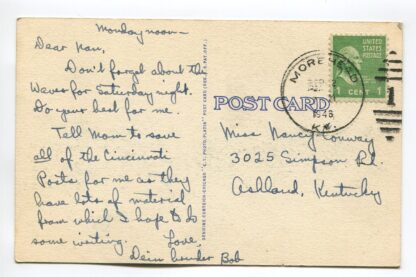 Monday noon—
Dear Nan,
Don't forget about the
Waves for Saturday night.
Do your best for me.
Tell Mom to save
all of the Cincinnati
Posts for me as they
have lots of material
from which I hope to do
some writing.
Love,
Dein bruder Bob
POST CARD
MOREHEAD
1948
KY.
UNITED
STATES
POSTAGE
1 CENT 1
Miss Nancy Conway
3025 Simpson Rd.
Ashland, Kentucky